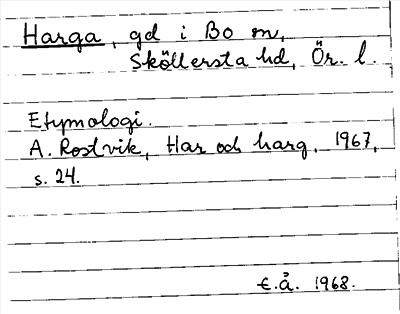 Harga, gd i Bo sn,
Sköllersta hd, Ör. l.
Etymologi.
A. Rostvik, Har och harg. 1967,
s. 24.
E.Å. 1968.